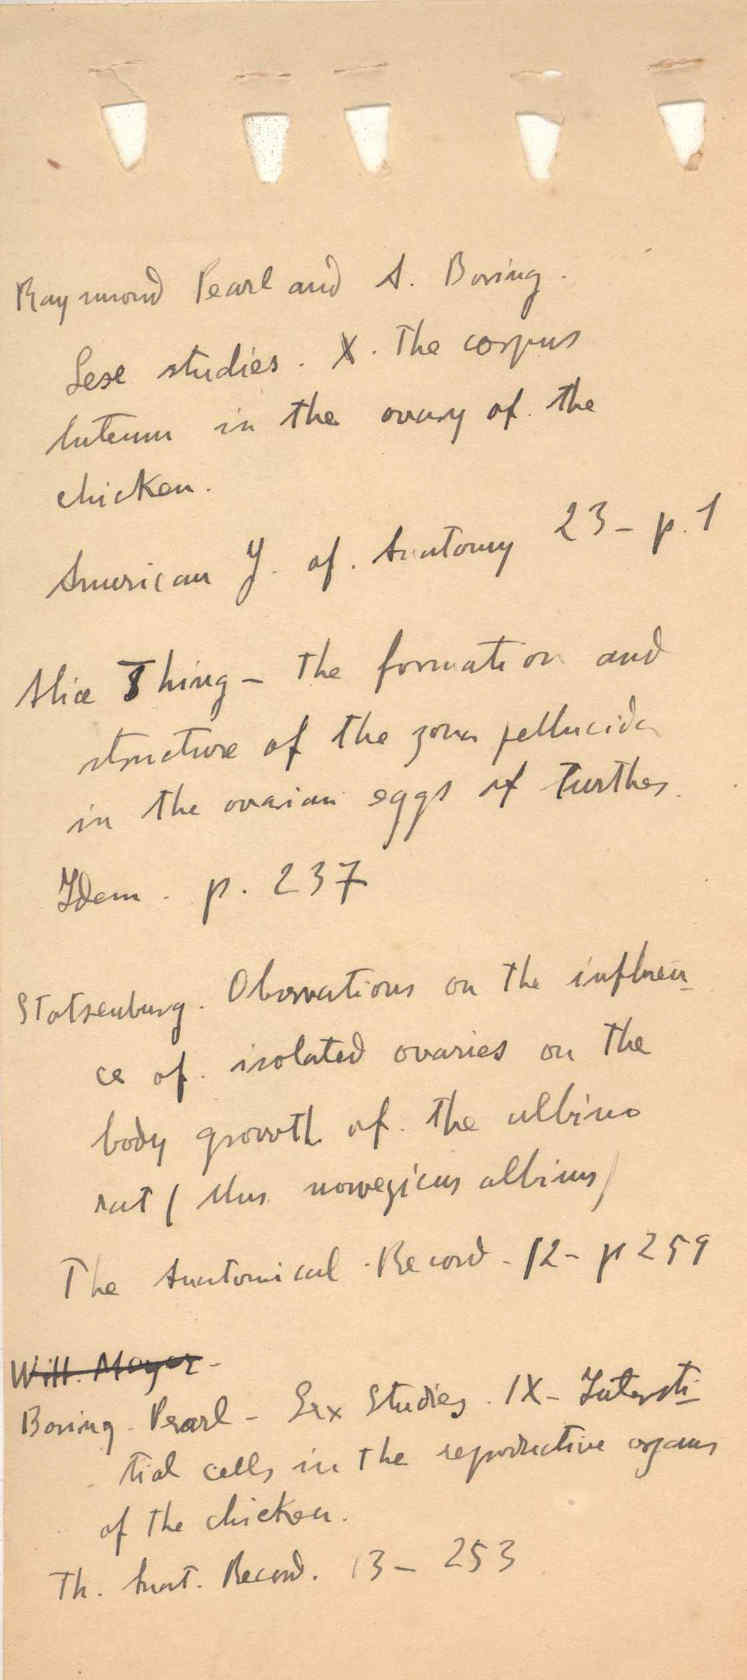 Raymond Pearl and A. Boring.
Sexe studies. X. The corpus
luteum in the ovary of the
chicken.
American J. of. Anatomy 23 - p. 1
Alice Thing - The formation and
structure of the zona pellucida
in the ovarian eggs of turthes.
Idem. p. 237
Stotsenburg. Observations on the influen_
ce of. isolated ovaries on the
body growth of. the albino
rat ( Mus norvegicus albinus)
The Anatomical Record - 12 - p 259
Will. Meyer -
Boring. Pearl - Sex Studies. IX - Intersti_
tial cells in the reproductive organs
of the chicken.
Th. Anat. Record. 13 - 253